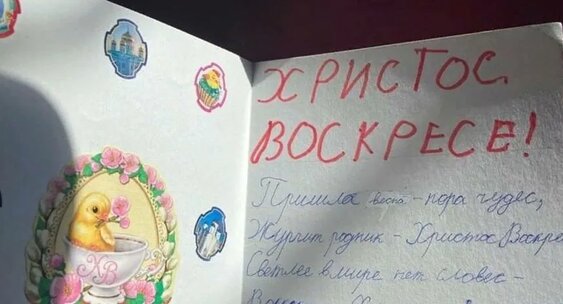 ХВ
ХРИСТОС
ВОСКРЕСЕ!
Пришла весна - пора чудес,
Журчит родник - Христос Воскре
Светлее в мире нет словес -